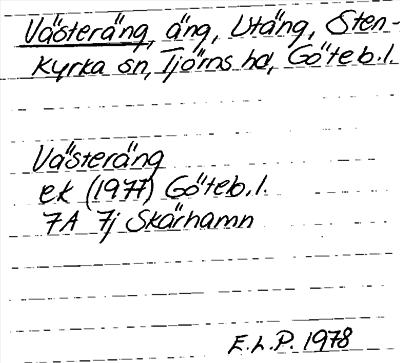 Västeräng, äng, Utäng, Sten-
kyrka sn, Tjörns hd, Göteb.l.
Västeräng
ek (1977) Göteb.l.
7A 7j Skärhamn
E.L.P. 1978